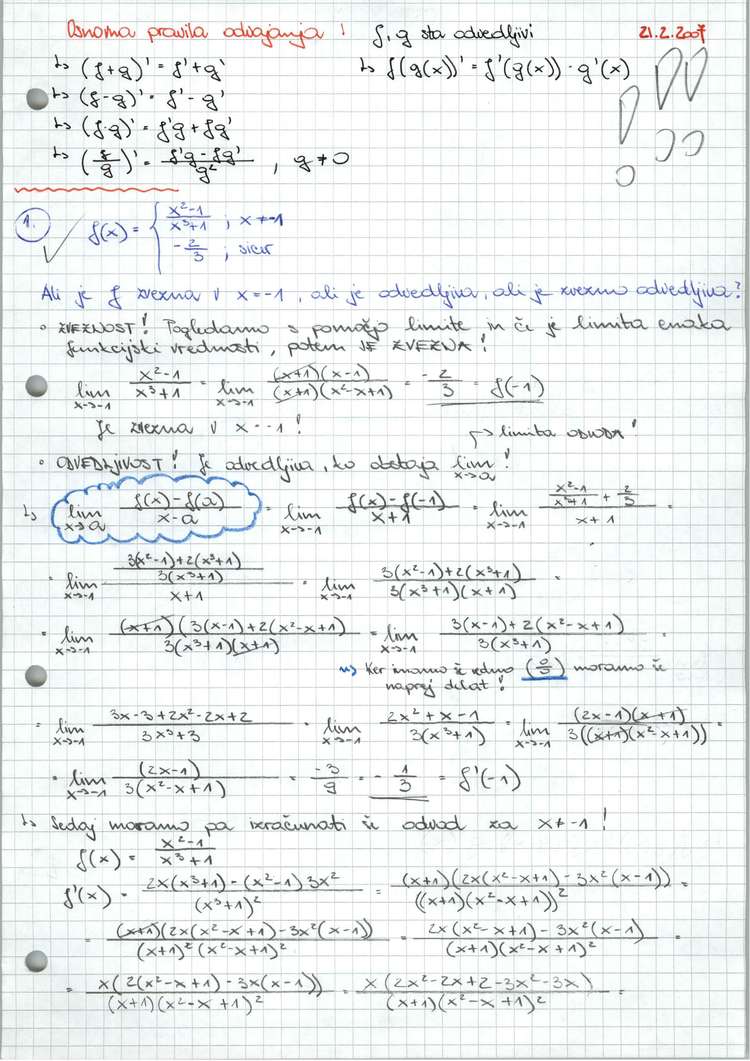 Osnovna pravila odvajanja! f, g sta odvedljivi 21.2.2007
↳ (f+g)' = f'+g' ↳ f(g(x))' = f'(g(x)) · g'(x)
↳ (f-g)' = f' - g'
↳ (f·g)' = f'g + fg'
↳ (f/g)' = (f'g - fg')/g² , g ≠ 0
1. f(x) = { (x²-1)/(x³+1) ; x ≠ -1
-2/3 ; sicer
Ali je f zvezna v x = -1, ali je odvedljiva, ali je zvezno odvedljiva?
• ZVEZNOST! Pogledamo s pomočjo limite in če je limita enaka
funkcijski vrednosti, potem JE ZVEZNA!
lim x→-1 (x²-1)/(x³+1) = lim x→-1 ((x+1)(x-1))/((x+1)(x²-x+1)) = -2/3 = f(-1)
Je zvezna v x = -1!
→ limita ODVODA!
• ODVEDLJIVOST! Je odvedljiva, ko obstaja lim x→a!
↳ lim x→a (f(x)-f(a))/(x-a) = lim x→-1 (f(x)-f(-1))/(x+1) = lim x→-1 ((x²-1)/(x³+1) + 2/3)/(x+1) =
= lim x→-1 ((3(x²-1)+2(x³+1))/(3(x³+1)))/(x+1) = lim x→-1 (3(x²-1)+2(x³+1))/(3(x³+1)(x+1)) =
= lim x→-1 ((x+1)(3(x-1)+2(x²-x+1))/(3(x³+1)(x+1)) = lim x→-1 (3(x-1)+2(x²-x+1))/(3(x³+1)) =
⇝ Ker imamo še vedno (0/0) moramo še
naprej delat!
= lim x→-1 (3x-3+2x²-2x+2)/(3x³+3) = lim x→-1 (2x²+x-1)/(3(x³+1)) = lim x→-1 ((2x-1)(x+1))/(3((x+1)(x²-x+1))) =
= lim x→-1 (2x-1)/(3(x²-x+1)) = -3/9 = -1/3 = f'(-1)
↳ Sedaj moramo pa izračunati še odvod za x ≠ -1!
f(x) = (x²-1)/(x³+1)
f'(x) = (2x(x³+1) - (x²-1)3x²)/(x³+1)² = ((x+1)(2x(x²-x+1) - 3x²(x-1)))/((x+1)(x²-x+1))² =
= ((x+1)(2x(x²-x+1)-3x²(x-1)))/((x+1)²(x²-x+1)²) = (2x(x²-x+1)-3x²(x-1))/((x+1)(x²-x+1)²) =
= (x(2(x²-x+1)-3x(x-1)))/((x+1)(x²-x+1)²) = (x(2x²-2x+2-3x²-3x))/((x+1)(x²-x+1)²) =